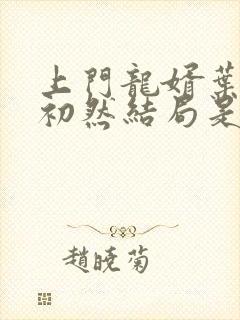 上門龍婿葉
初然結局是
趙曉菊